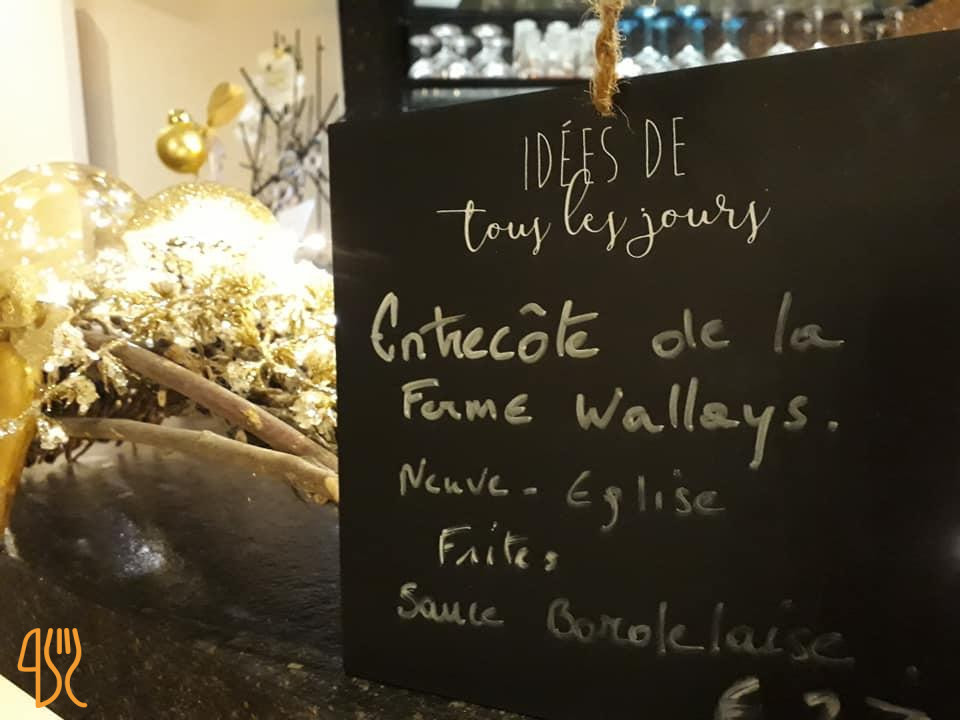 IDÉES DE
tous les jours
Entrecôte de la
Ferme Wallays.
Neuve-Eglise
Frites
Sauce Bordelaise.